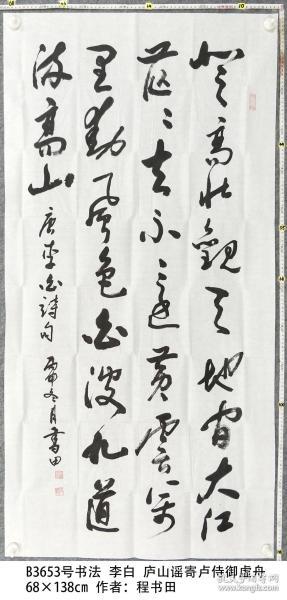 登高壮觀天地间大江
茫〻去不還黄雲万
里動風色白波九道
流雪山
唐李白詩句 丙申冬月書田
B3653号书法 李白 庐山谣寄卢侍御虚舟
68×138cm 作者：程书田